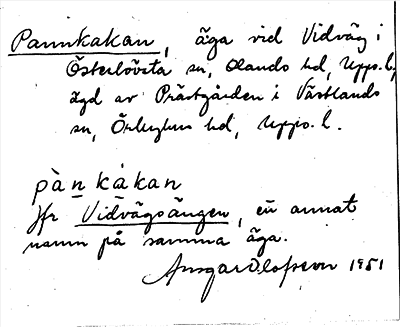 Pannkakan, äga vid Vidväg i
Österlövsta sn, Olands hd, Upps. l.,
ägd av Prästgården i Västlands
sn, Örbyhus hd, Upps. l.
pànkákan
Jfr Vidvägsängen, en annat
namn på samma äga.
Ansgar Olofsson 1951